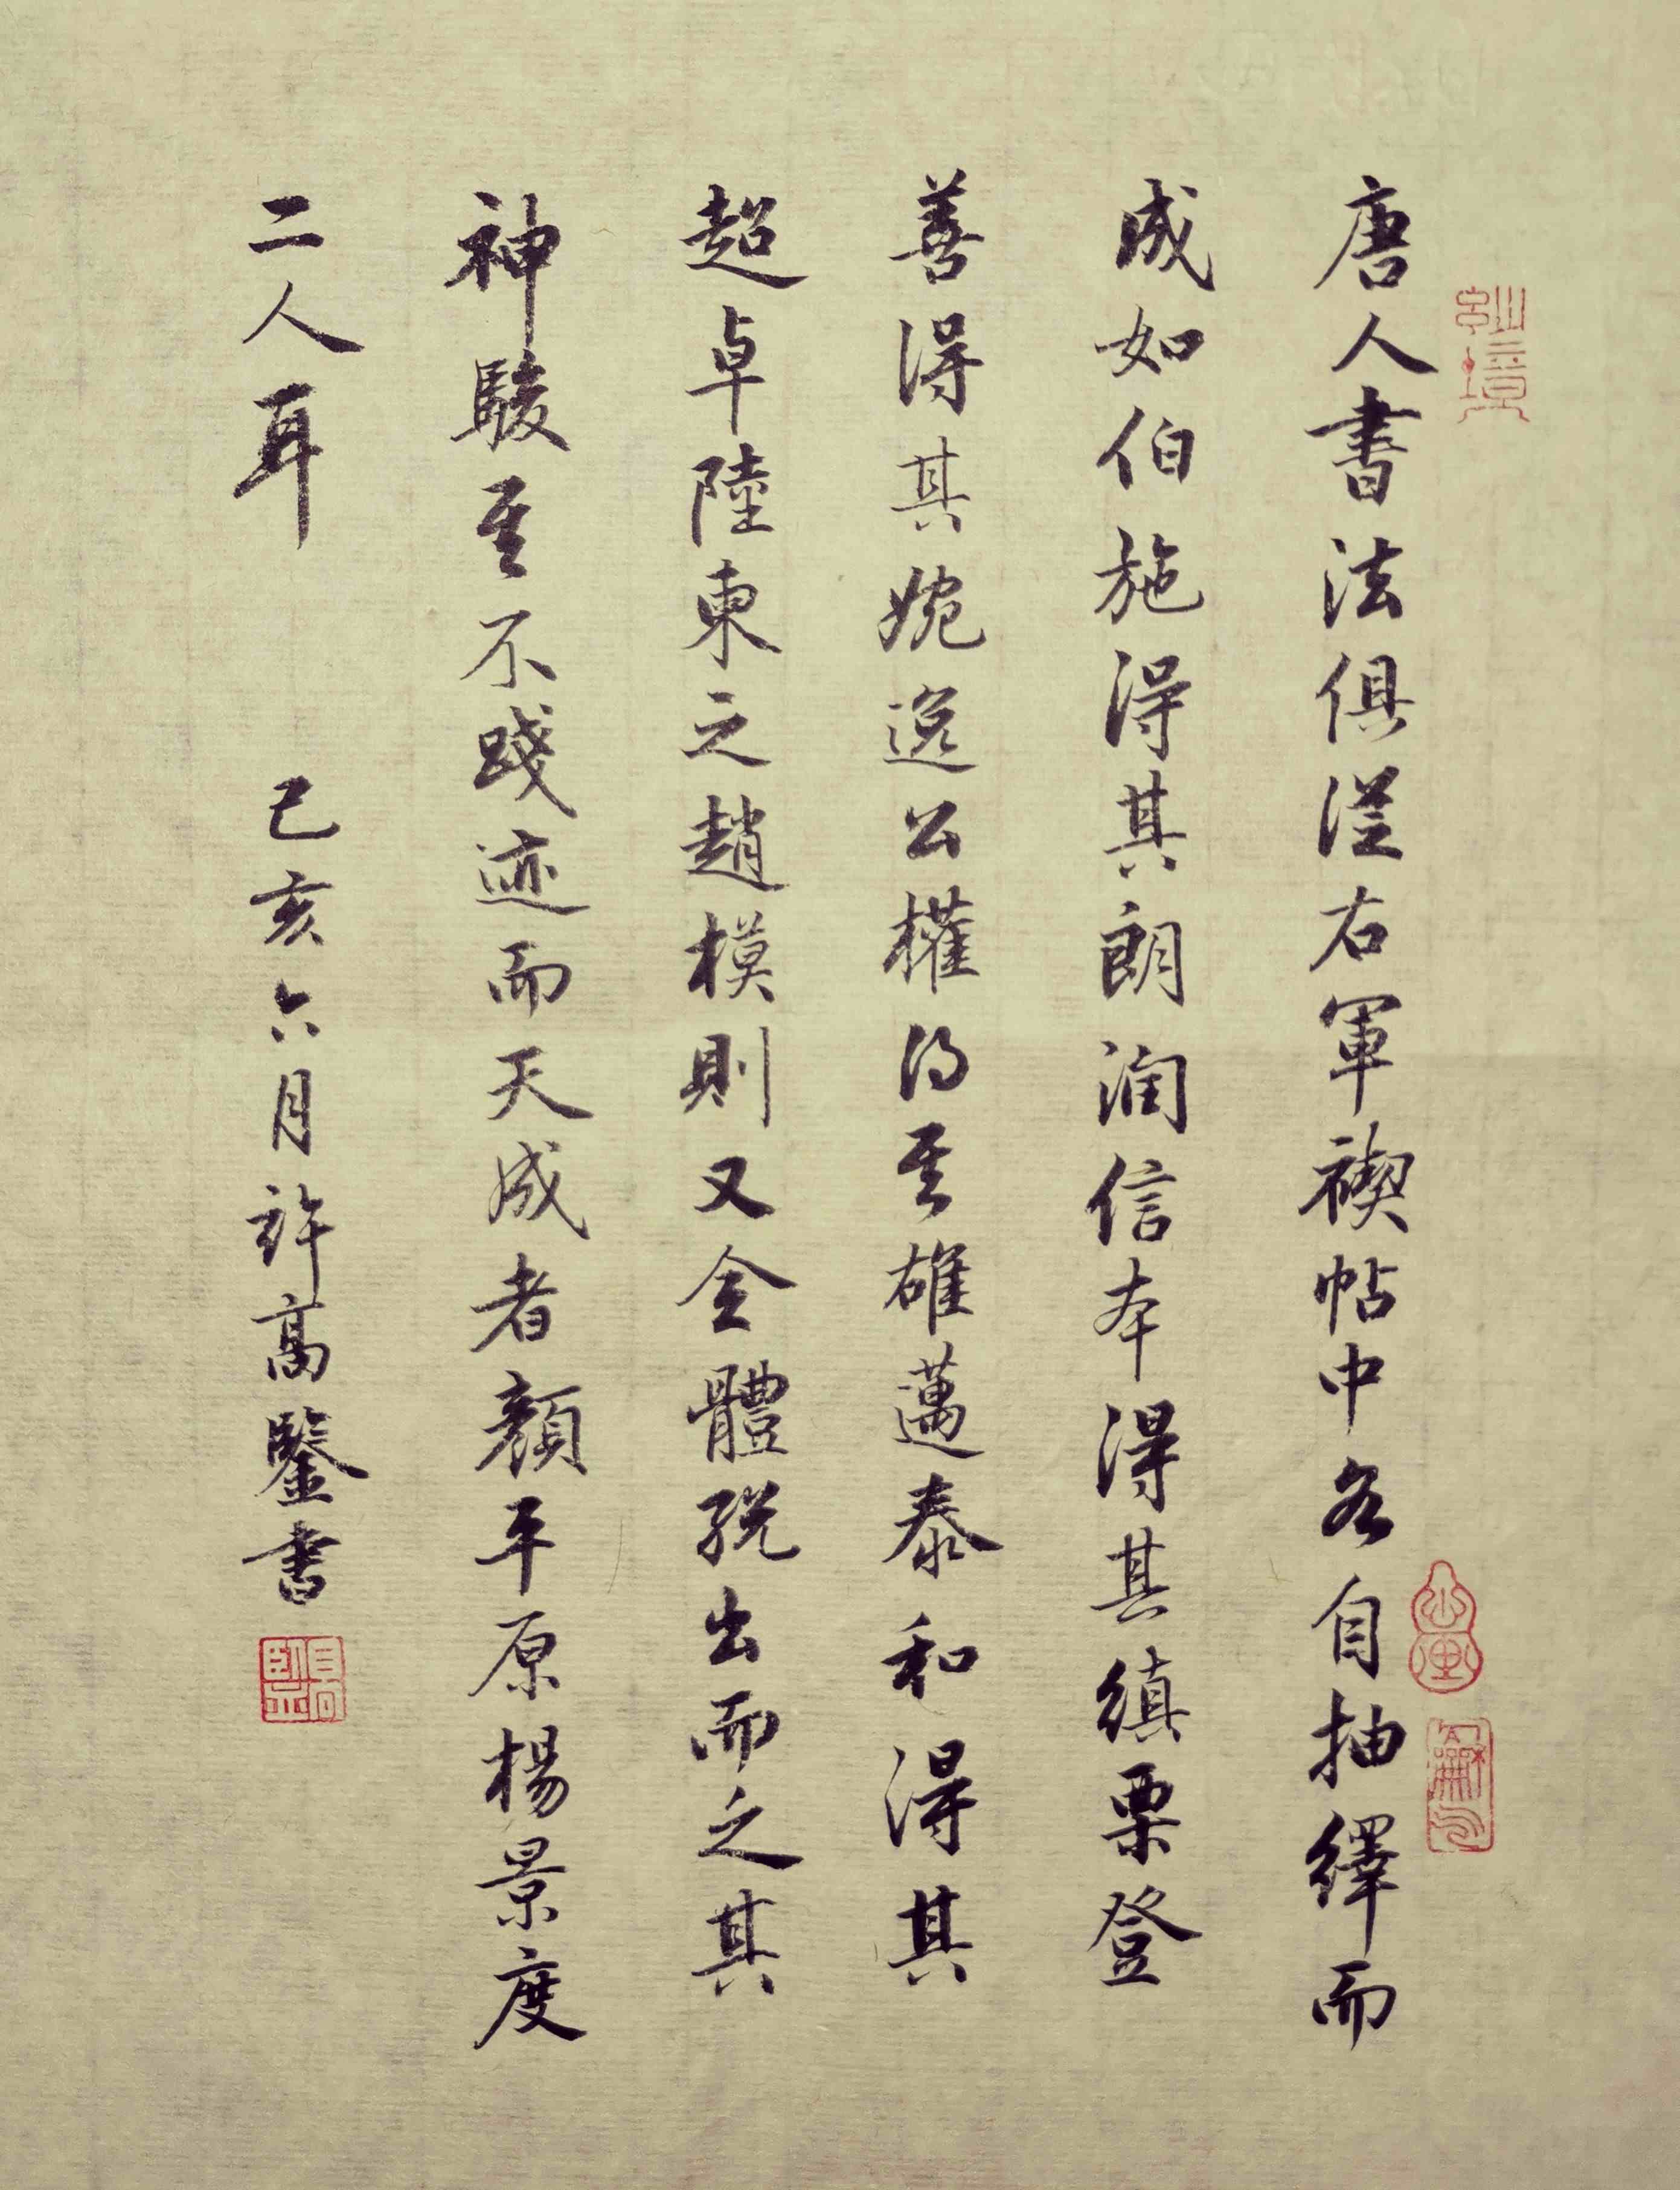 唐人書法俱從右軍禊帖中各自抽繹而
成如伯施得其朗潤信本得其縝栗登
善得其婉逸公權得其雄邁泰和得其
超卓陸東之趙模則又全體脱出而之其
神駿至不踐迹而天成者顏平原楊景度
二人耳
己亥六月許高鑒書